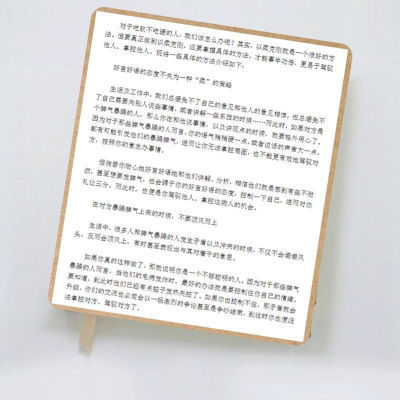 对于吃软不吃硬的人，我们该怎么办呢？其实，以柔克刚就是一个很好的方
法。但要真正做到以柔克刚，还要掌握具体的方法，才能事半功倍，更易于驾驭
他人、掌控他人。现将一些具体的方法介绍如下：
好言好语的态度不失为一种“柔”的策略
生活及工作中，我们总避免不了自己的意见和他人的意见相悖，也总避免不
了自己需要向别人说些事情，或者讲解一些东西的时候……而此时，如果对方是
个脾气暴躁的人，那么你在和他说事情，以及讲观点的时候，就要格外用心了。
因为对于那些脾气暴躁的人而言，你的语气稍稍硬一点，或者说话的声音大一点，
都有可能引发他们的暴脾气，进而让你无法掌控局面，也不能更有效地驾驭对
方，按照你的意志办事情。
但倘若你耐心地好言好语地和他们讲解、分析，相信他们就是感到有些不耐
烦，甚至想要发脾气，也会碍于你的好言好语的态度，控制一下自己，进而对你
礼让三分。而此时，也便是你驾驭他人、掌控这类人的机会。
在对方暴躁脾气上来的时候，不要顶风而上
生活中，很多人和脾气暴躁的人发生矛盾以及冲突的时候，不仅不会避避风
头，反而会顶风上，有时甚至表现出与其对着干的意思。
如果你真的这样做了，那就说明你是一个不够聪明的人。因为对于那些脾气
暴躁的人而言，当他们的毛病发作时，最好的办法就是要控制住你自己的情绪。
要知道，到此时他们已经有点脑子发热失控了，如果你也控制不住，那矛盾就会
升级，你们的交流也必定会以一场激烈的争论甚至是争吵结束，到这时你也便没
法掌控对方、驾驭对方了。